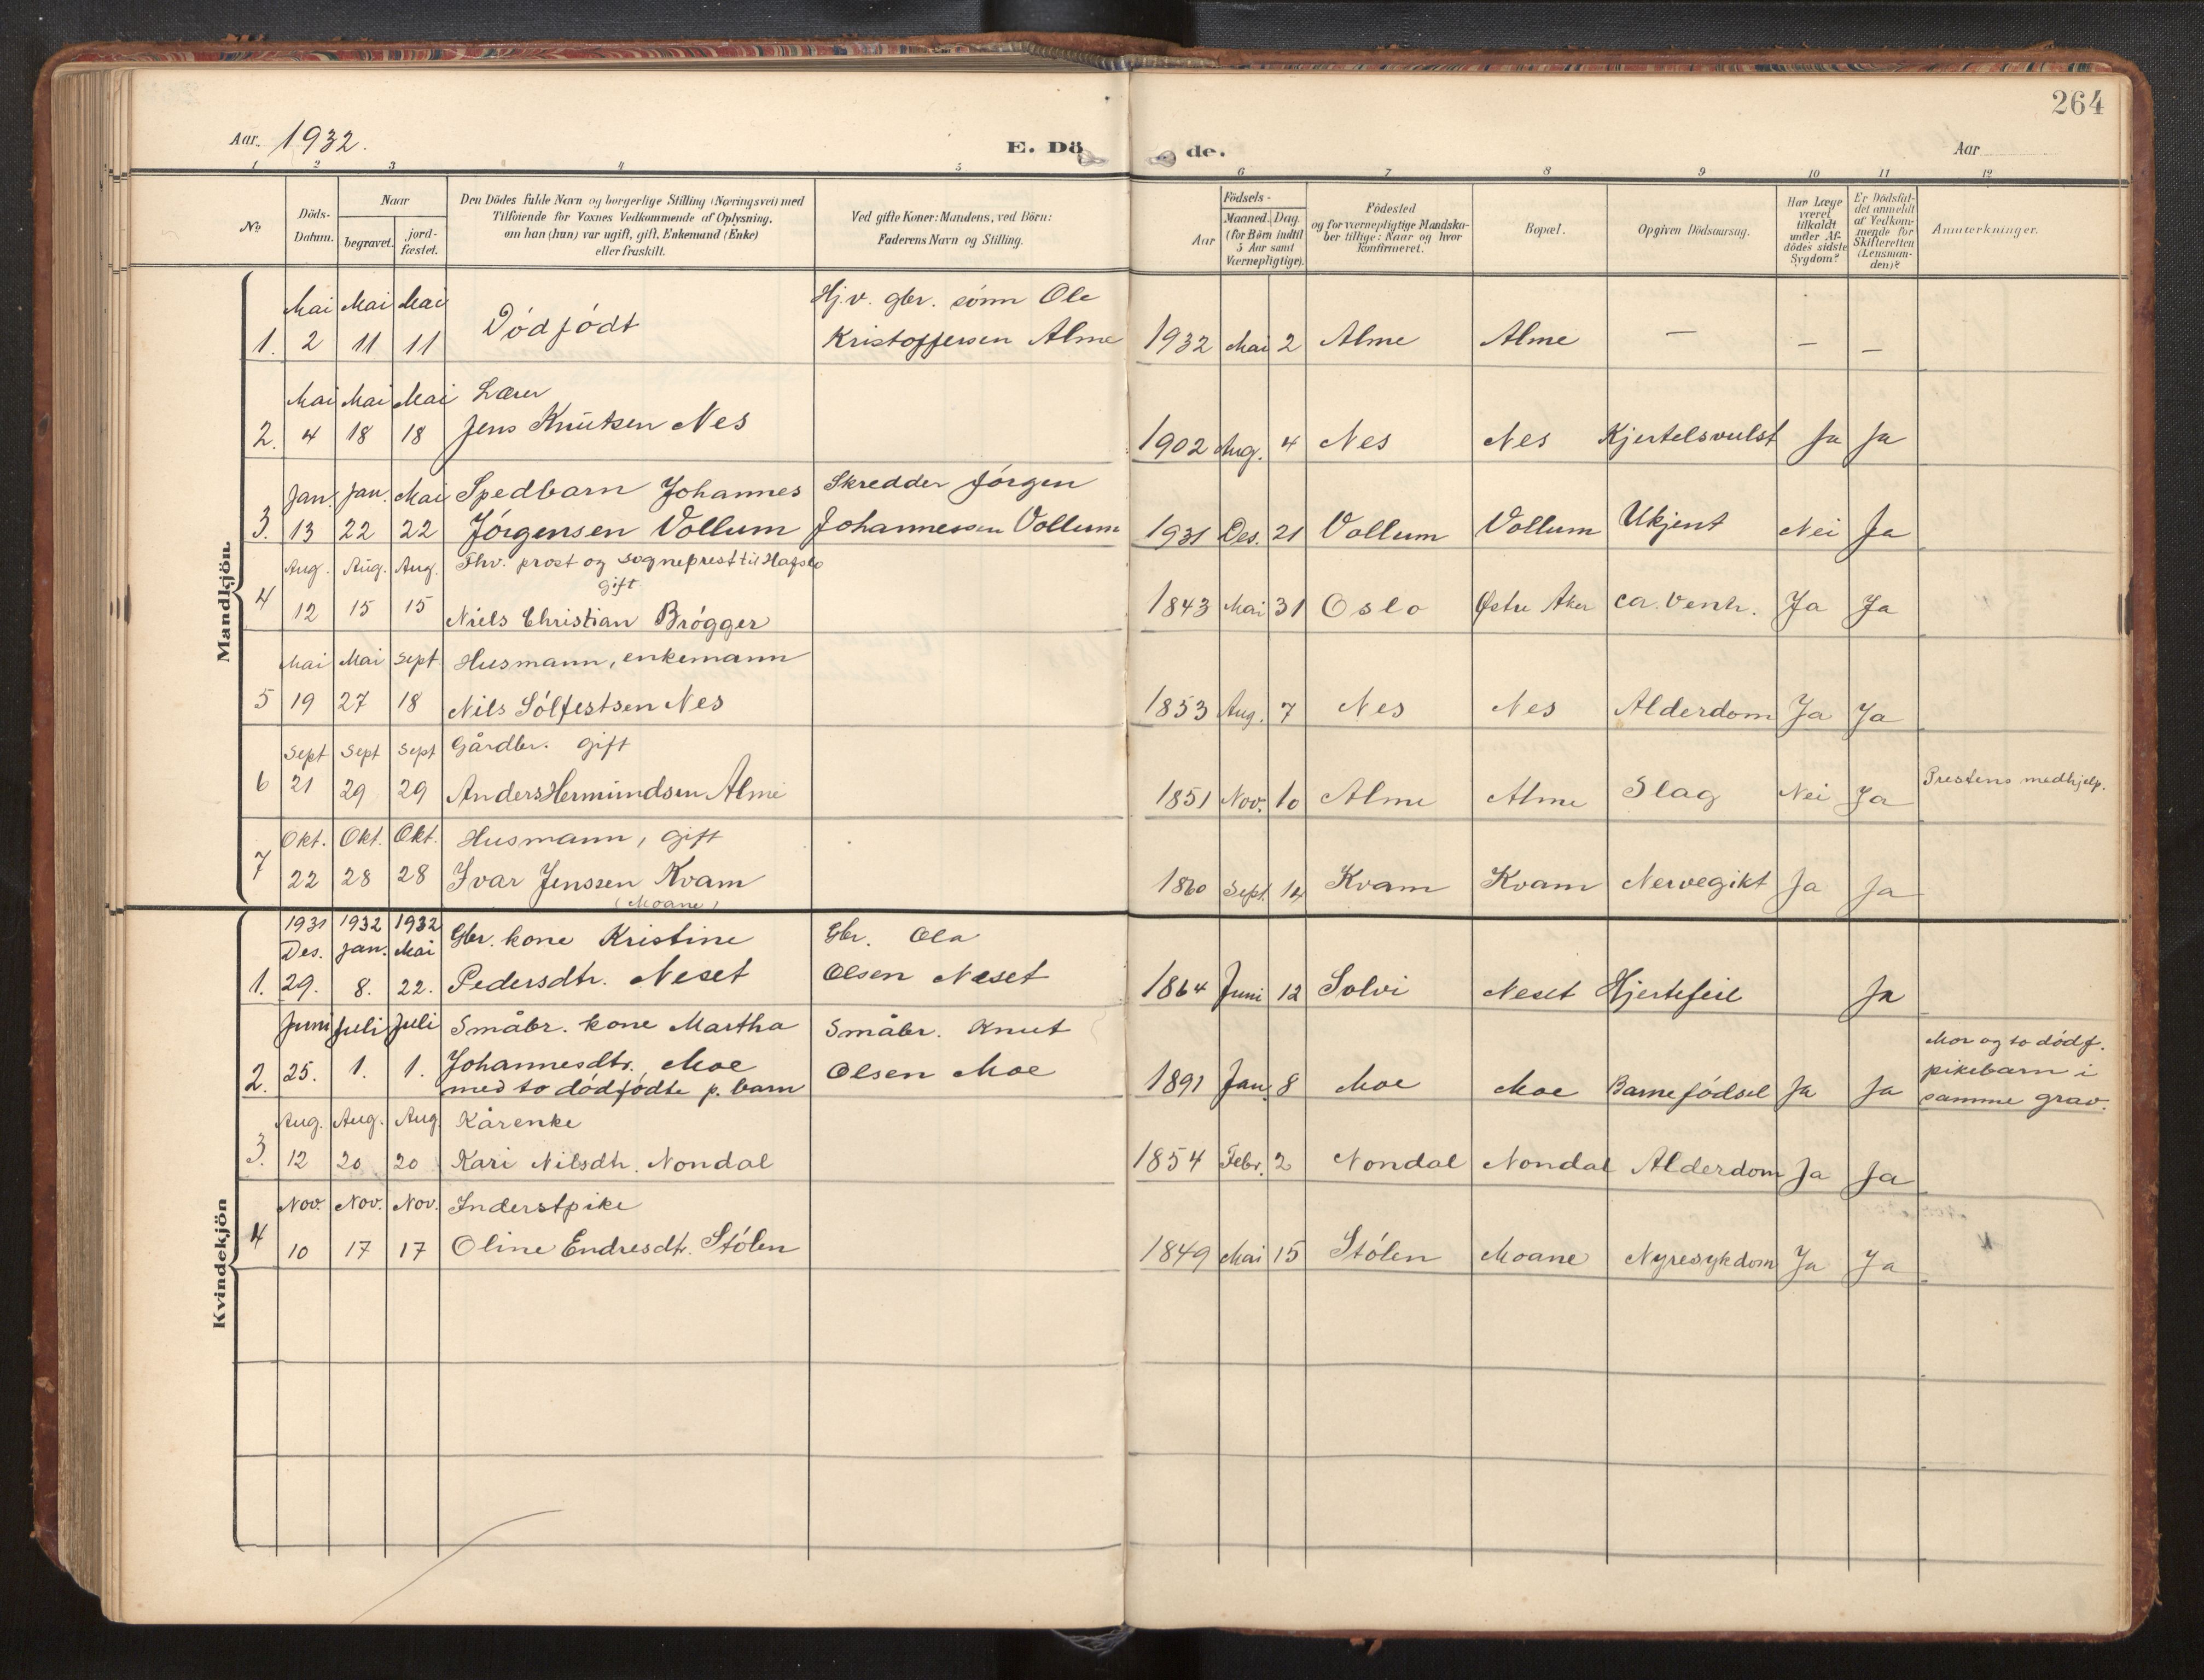 264
Aar. 1932.
E. Dö de.
Aar
1 2 3 4 5 6 7 8 9 10 11 12
No.
Döds-
Datum.
Naar
begravet.
jord-
fæstet.
Den Dödes fulde Navn og borgerlige Stilling (Næringsvei) med
Tilföiende for Voxnes Vedkommende af Oplysning,
om han (hun) var ugift, gift, Enkemand (Enke)
eller fraskilt.
Ved gifte Koner: Mandens, ved Börn:
Faderens Navn og Stilling.
Aar
Födsels-
Maaned. Dag.
(for Börn indtil
5 Aar samt
Værnepligtige).
Födested
og for værnepligtige Mandska-
ber tillige: Naar og hvor
konfirmeret.
Bopæl.
Opgiven Dödsaarsag.
Har Læge
været
tilkaldt
under Af-
dödes sidste
Sygdom?
Er Dödsfal-
det anmeldt
af Vedkom-
mende for
Skifteretten
(Lensman-
den)?
Anmærkninger.
Mandkjön.
Mai Mai Mai Hj.v. gbr. sönn Ole
1. 2 11 11 Dödfödt Kristoffersen Alme 1932 Mai 2 Alme Alme — — —
Mai Mai Mai Lærer
2. 4 18 18 Jens Knutsen Nes 1902 Aug. 4 Nes Nes Kjertelsvulst Ja Ja
Jan. Jan. Mai Spedbarn Johannes Skredder Jörgen
3. 13 22 22 Jörgensen Vollum Johannessen Vollum 1931 Des. 21 Vollum Vollum Ukjent Nei Ja
Aug. Aug. Aug. Fhv. prost og sogneprest til Hafslo
gift
4 12 15 15 Niels Christian Brögger 1843 Mai 31 Oslo Østre Aker ca. ventr. Ja Ja
Mai Mai Sept Husmann, enkemann
5 19 27 18 Nils Sölfestsen Nes 1853 Aug. 7 Nes Nes Alderdom Ja Ja
Sept Sept Sept Gårdbr. gift
6 21 29 29 Anders Hermundsen Alme 1851 Nov. 10 Alme Alme Slag Nei Ja Prestens medhjelp.
Okt. Okt. Okt. Husmann, gift
7 22 28 28 Ivar Jenssen Kvam 1860 Sept. 14 Kvam Kvam Nervegikt Ja Ja
(Moane)
Kvindekjön
1931 1932 1932
Des. Jan. Mai Gbr. kone Kristine Gbr. Ola
1. 29. 8. 22. Pedersdtr. Neset Olsen Neset 1864 Juni 12 Solvi Neset Hjertefeil Ja
Juni Juli Juli Småbr. kone Martha Småbr. Knut
2. 25. 1. 1. Johannesdtr. Moe Olsen Moe 1891 Jan. 8 Moe Moe Barnefödsel Ja Ja
med to dödfödte p. barn
Mor og to dödf.
pikebarn i
samme grav.
Aug. Aug. Aug. Kårenke
3. 12 20 20 Kari Nilsdtr. Nondal 1854 Febr. 2 Nondal Nondal Alderdom Ja Ja
Nov. Nov. Nov. Inderstpike
4 10 17 17 Oline Endresdtr. Stölen 1849 Mai 15 Stölen Moane Nyresykdom Ja Ja